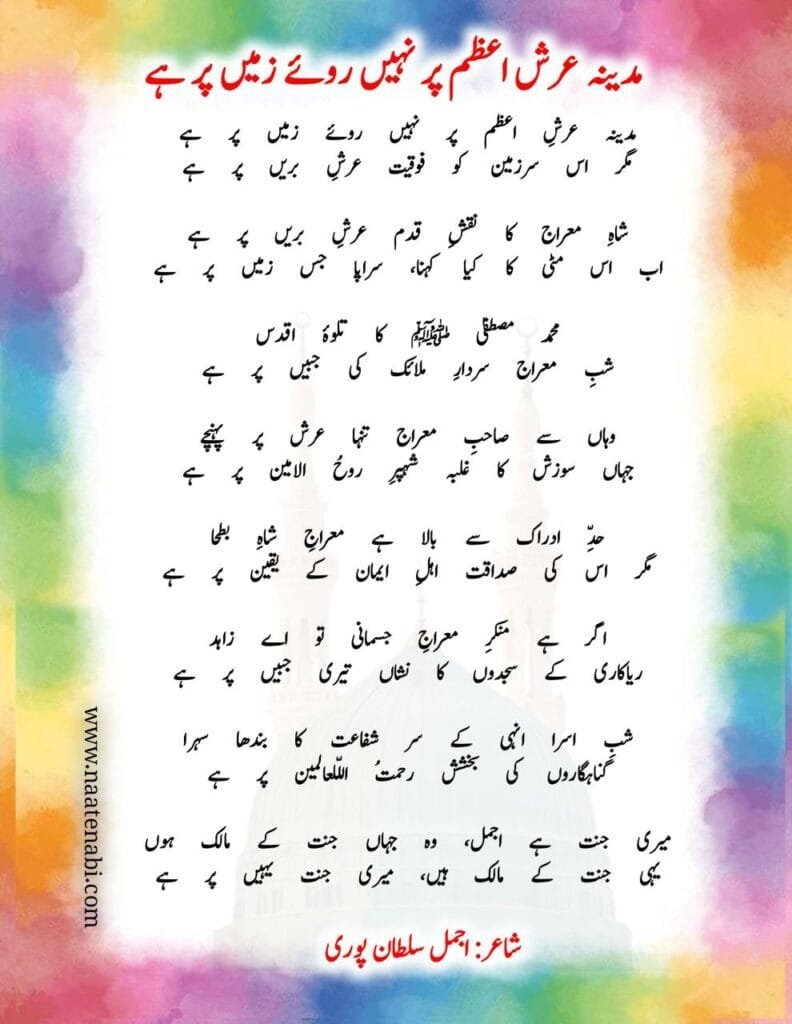 مدینہ عرش اعظم پر نہیں روئے زمیں پر ہے
مدینہ عرشِ اعظم پر نہیں روئے زمیں پر ہے
مگر اس سرزمین کو فوقیت عرشِ بریں پر ہے
شاہِ معراج کا نقشِ قدم عرشِ بریں پر ہے
اب اس مٹی کا کیا کہنا، سراپا جس زمیں پر ہے
محمد مصطفٰی ﷺ کا تلوۂ اقدس
شبِ معراج سردارِ ملائک کی جبیں پر ہے
وہاں سے صاحبِ معراج تنہا عرش پر پہنچے
جہاں سوزش کا غلبہ شہپرِ روحُ الامین پر ہے
حدِّ ادراک سے بالا ہے معراجِ شاہِ بطحا
مگر اس کی صداقت اہلِ ایمان کے یقین پر ہے
اگر ہے منکرِ معراجِ جسمانی تو اے زاہد
ریاکاری کے سجدوں کا نشاں تیری جبیں پر ہے
شبِ اسرا انہی کے سر شفاعت کا بندھا سہرا
گناہگاروں کی بخشش رحمتُ اللّعالمین پر ہے
میری جنت ہے اجمل، وہ جہاں جنت کے مالک ہوں
یہی جنت کے مالک ہیں، میری جنت یہیں پر ہے
شاعر: اجمل سلطان پوری
www.naatenabi.com